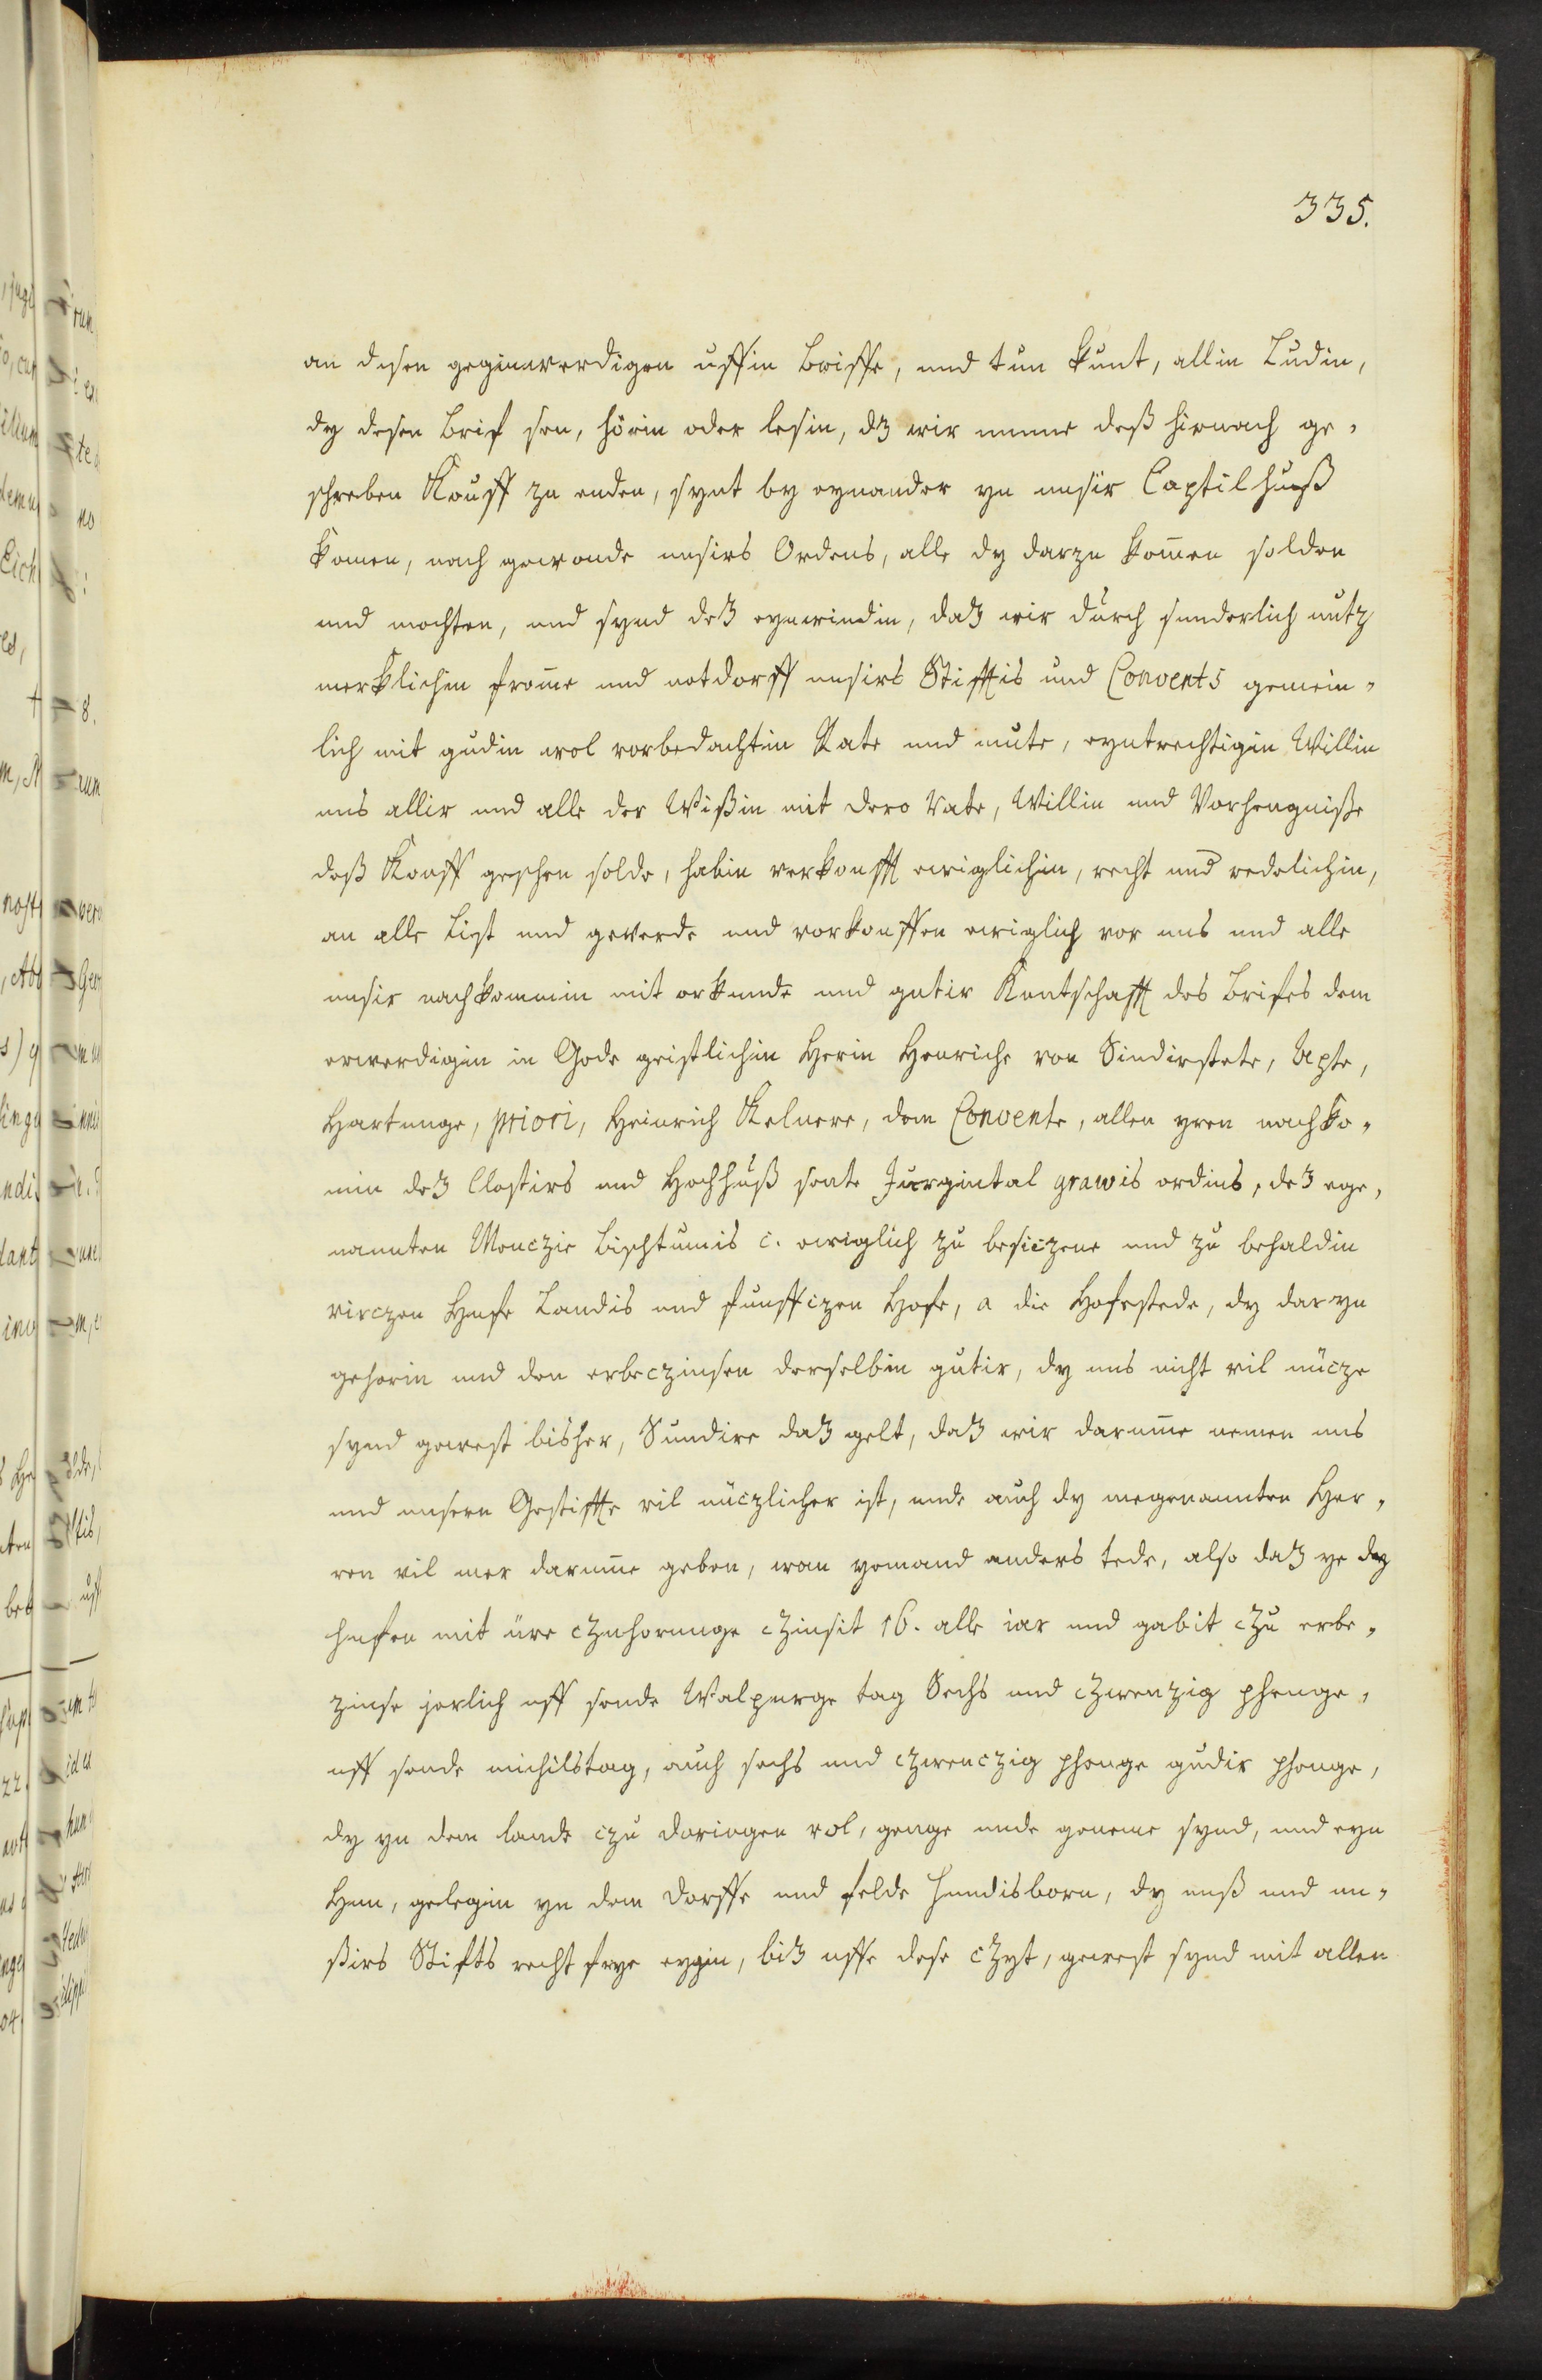 335.
an desen geginwerdigen uffin Briffe, und tun kunt, allin Ludin,
dy desen Brif sen, hörin oder lesin, dz wir umme deß hirnach ge-
schreben Kouff zu enden, synt by eynander yn unsir Captilhuß
komen, nach gewonde unsirs Ordens, alle dy darzu kom̄en solden
und mochten, und synd deß eynwindin, daß wir durch sunderlich nutz
merklichin from̄e und notdorff unsirs Stifftis und Convents gemein-
lich mit gudin wol vorbedachtin Rate und mute, eyntrechtigin Willin
uns allir und alle der Wißin mit dero Rate, Willin und Vorhengniße
deß Kouff geschen solde, habin verkoufft ewiglichin, recht und redelichin,
an alle List und geverde und vorkouffen ewiglich vor uns und alle
unsir nachkommin mit orkunde und gutir Kuntschafft des Brifes dem
erwerdigin in Gode geistlichin Herin Henriche von Sindirstete, Apte,
Hartunge, priori, Heinrich Kelnere, dem Convente, allen yren nachko-
min deß Clostirs und Hochhuß sente Jurgintal grawis ordins, deß ege-
nannten Menczir Bischtumis c. ewiglich zu besiczene und zu behaldin
virczen Hufe Landis und funffczen Hofe, a die Hofestede, dy dar yn
gehorin und den erbeczinsen derselbin gutir, dy uns nicht vil nücze
synd gewest bisher, Sundire daß gelt, daß wir darum̄e nemen uns
und unsern Gestiffte vil nüczlicher ist, unde auch dy megenannten Her-
ren vil mer darum̄e geben, wan yemand anders tede, also daß ye dy
hufen mit üre czuhorunge czinsit 16. alle iar und gabit czu erbe-
zinse jerlich uff sende Walpurge tag Sechs und czwenzig phenge,
uff sende michilstag, auch sechs und czwenczig phenge gudir phenge,
dy yn dem lande czu doringen vol, genge unde geneme synd, und eyn
Hun, gelegin yn dem Dorffe und felde Hundisborn, dy unß und un-
ßirs Stifts recht frye eygin, biß uffe dese cZyt, gewest synd mit allen